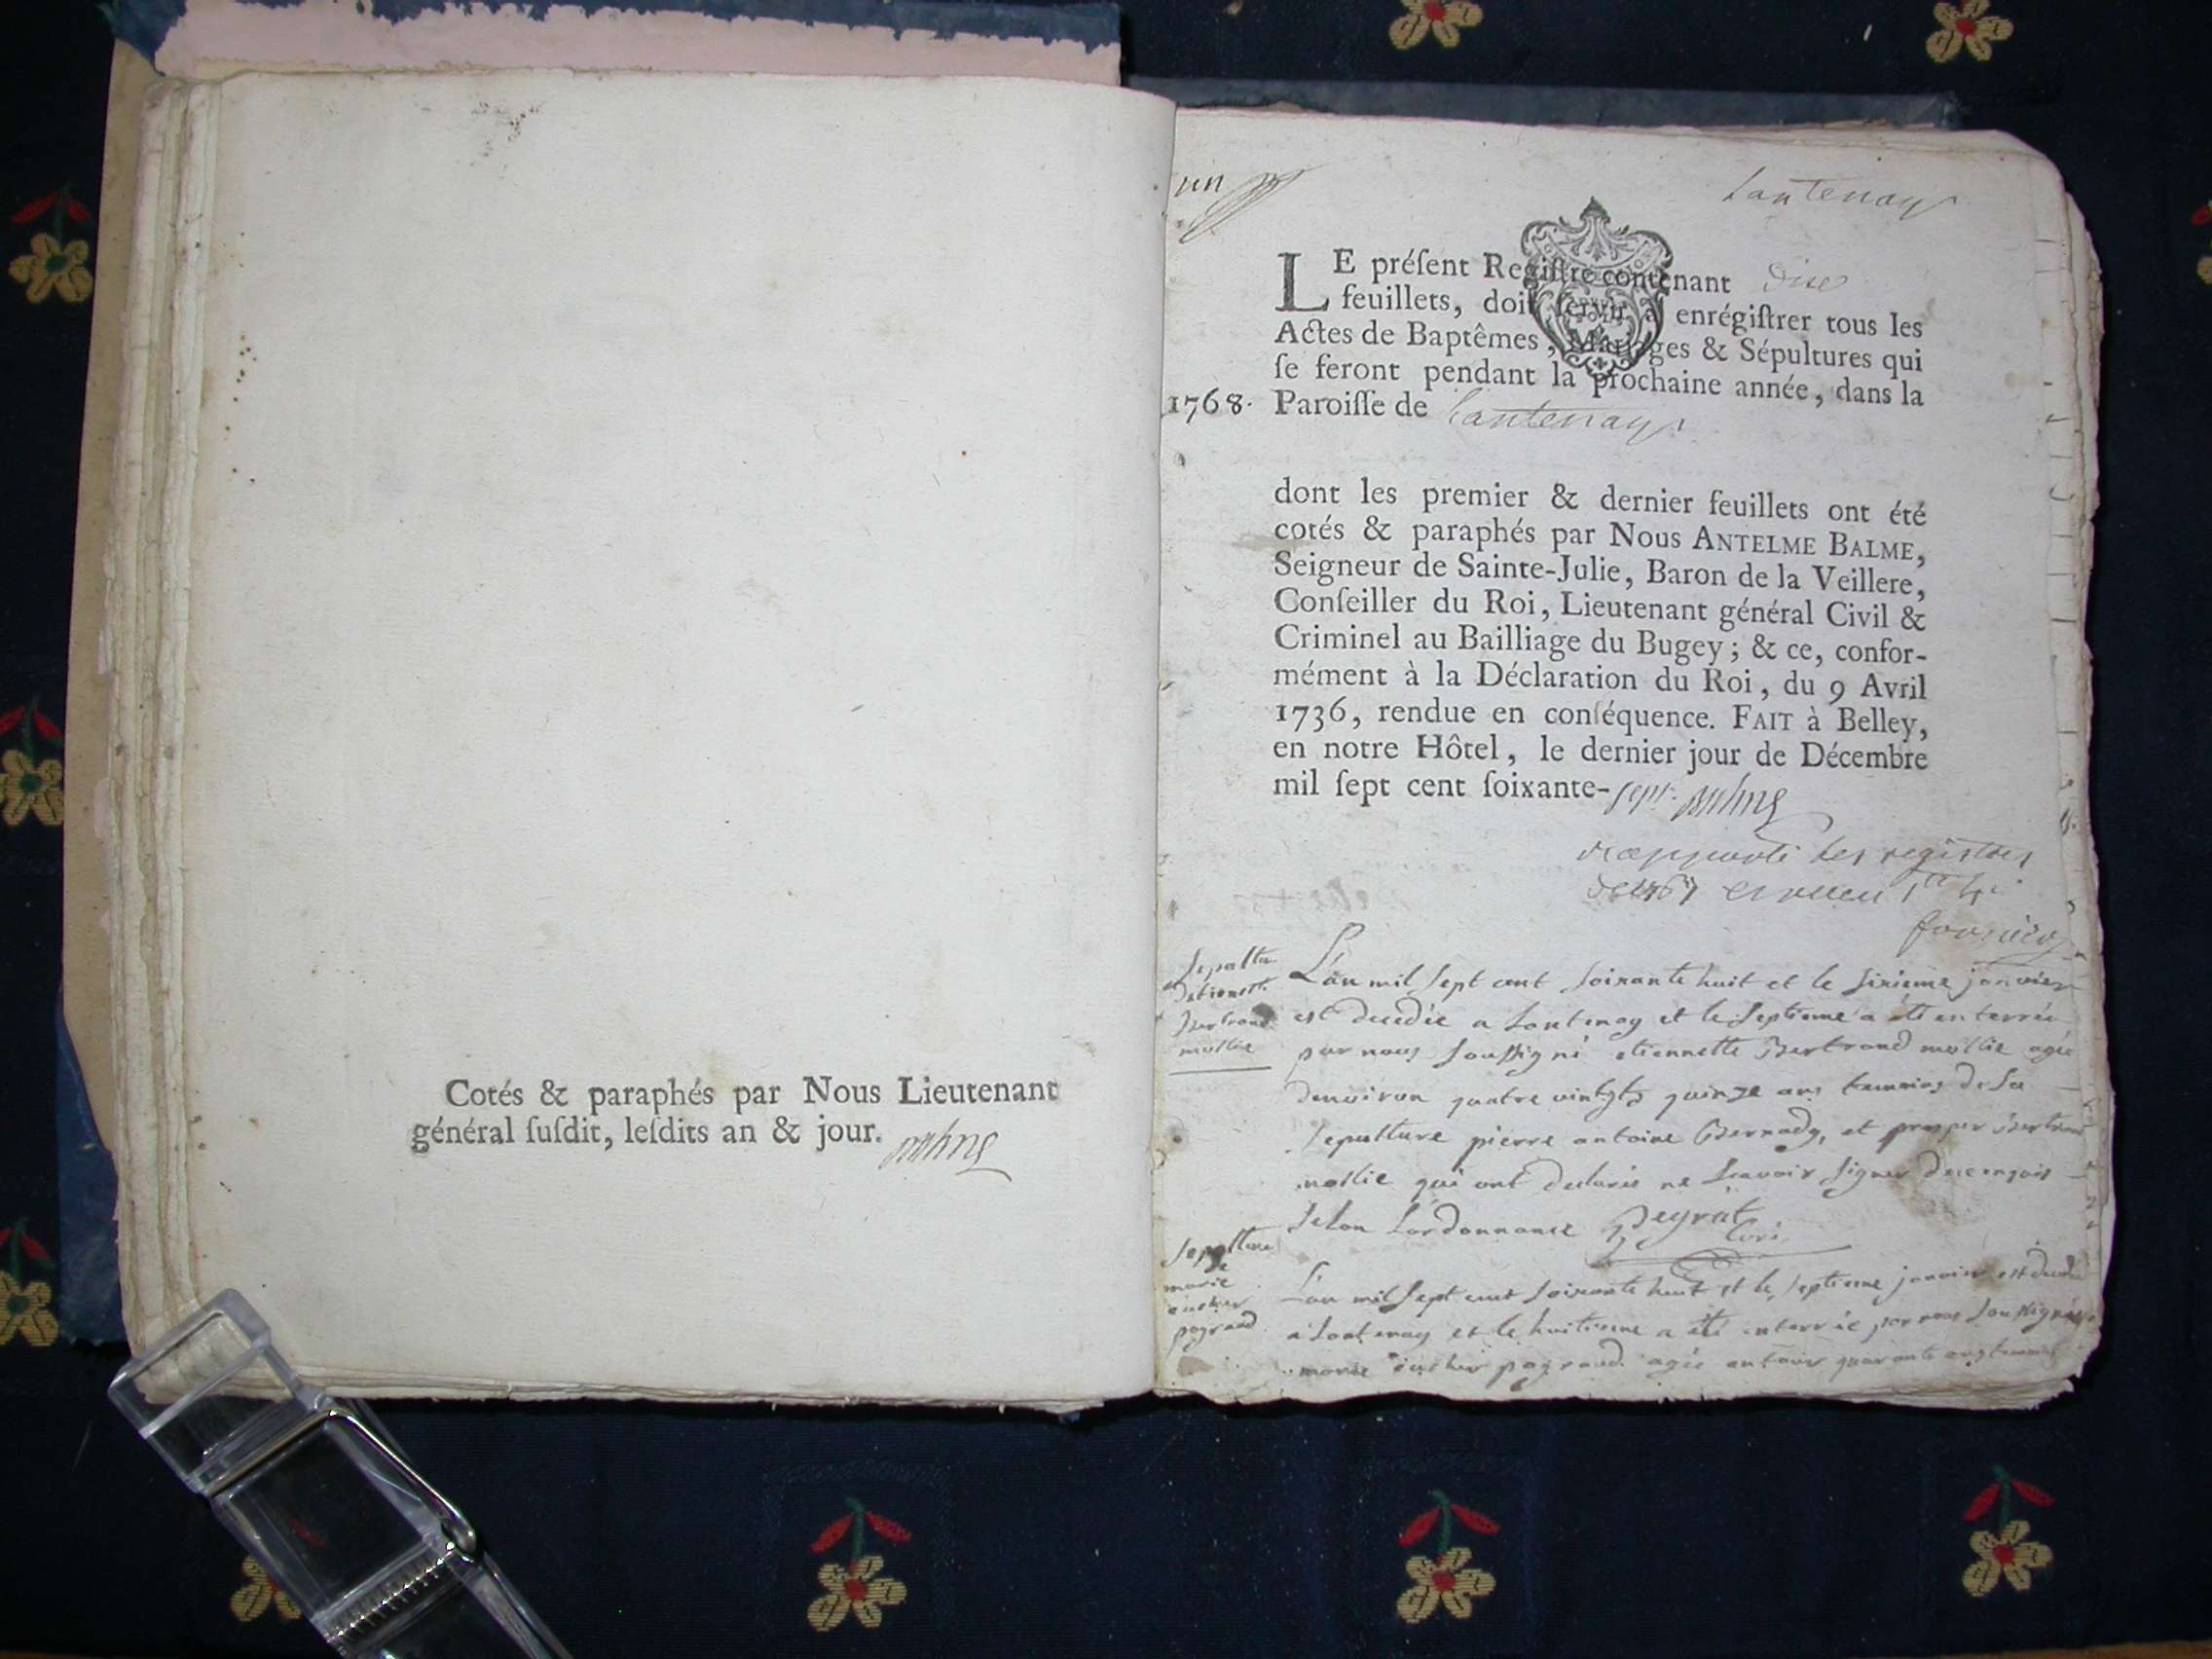 Cotés & paraphés par Nous Lieutenant
général ſuſdit, leſdits an & jour.
un
Lantenay
LE préſent Regiſtre contenant dixe
feuillets, doit ſervir à enrégiſtrer tous les
Actes de Baptêmes, Mariages & Sépultures qui
ſe feront pendant la prochaine année, dans la
1768. Paroiſſe de Lantenay
dont les premier & dernier feuillets ont été
cotés & paraphés par Nous ANTELME BALME,
Seigneur de Sainte-Julie, Baron de la Veillere,
Conſeiller du Roi, Lieutenant général Civil &
Criminel au Bailliage du Bugey; & ce, confor-
mément à la Déclaration du Roi, du 9 Avril
1736, rendue en conſéquence. FAIT à Belley,
en notre Hôtel, le dernier jour de Décembre
mil ſept cent ſoixante-sept. Balme
rapporté les registres
de 1767
Sepultu
detiennette
Bertrand
mollie
L'an mil sept cent soixante huit et le sixieme janvier
est decedée a Lantenay et le septieme a été enterrée
par nous soussigné etiennette Bertrand mollie agée
denviron quatre vingts quinze ans temoins de sa
sepulture pierre antoine Bernady, et prosper Bertrand
mollie qui ont declarés ne scavoir signer
selon l'ordonnance Peyrat
curé
Sepulture
de
marie
pograud
L'an mil sept cent soixante huit et le septieme janvier est decedée
a Lantenay et le huitieme a été enterrée par nous soussigné
marie pograud agée quarante ans temoins